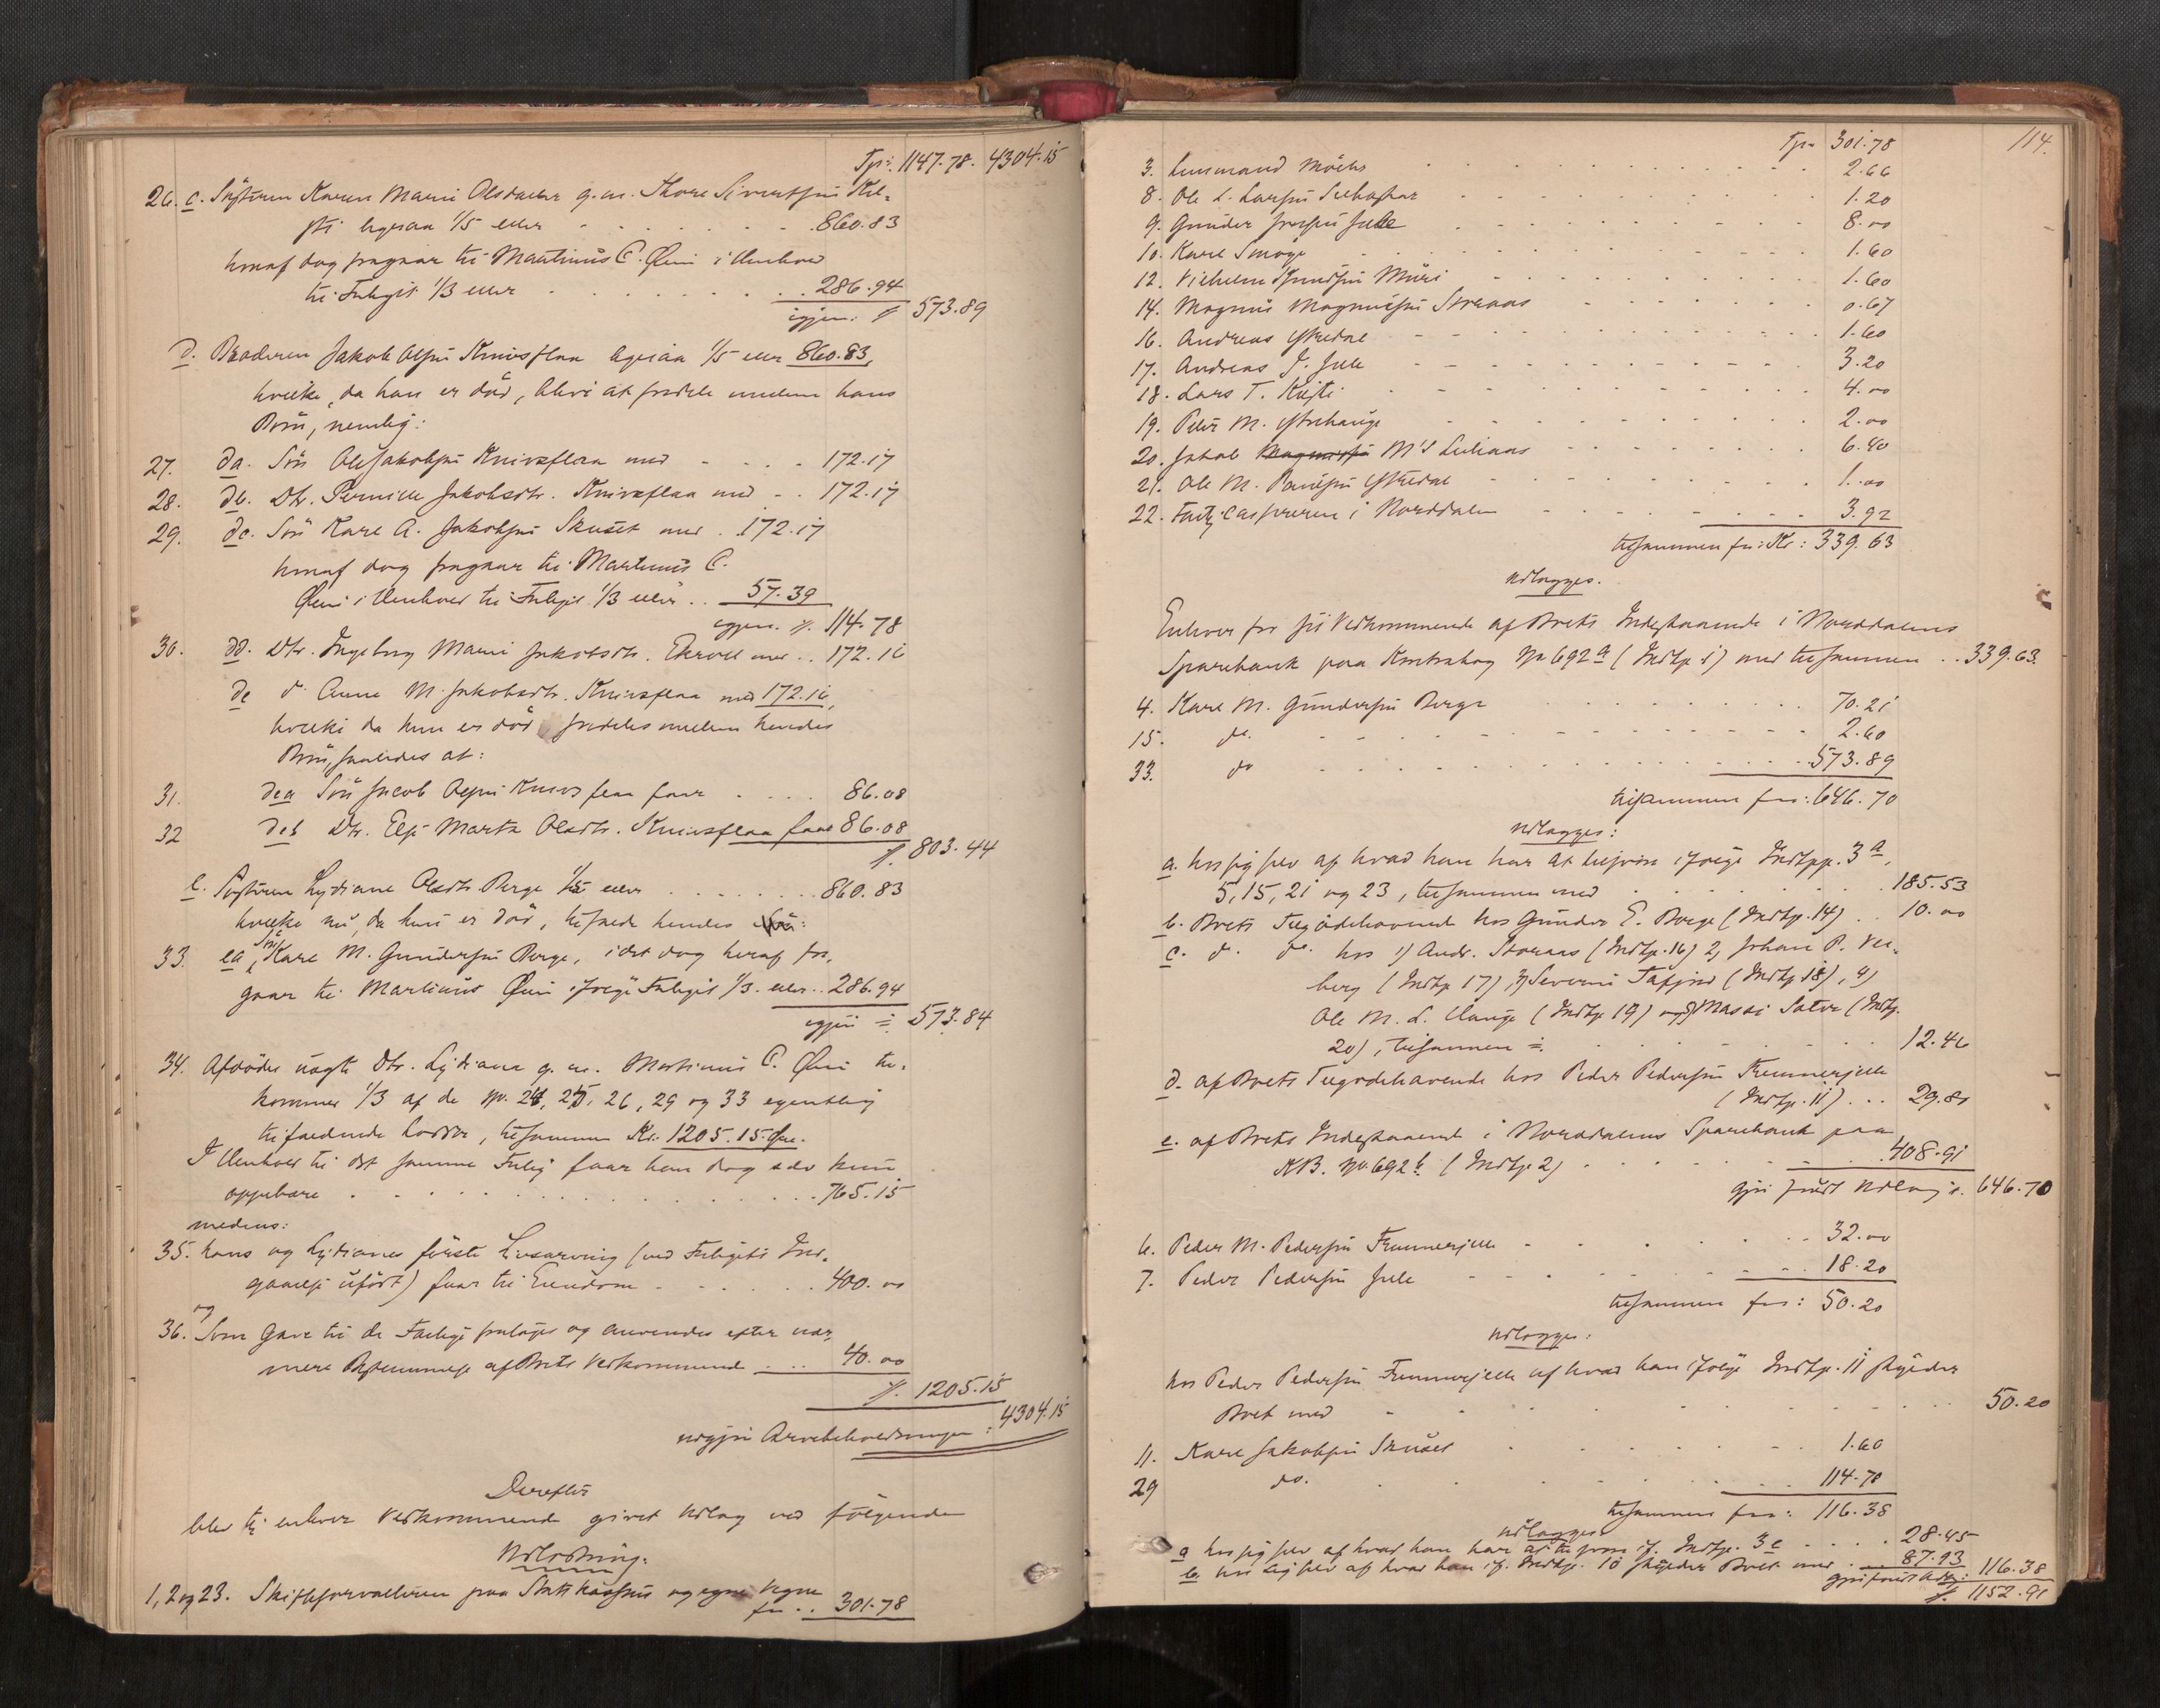 Tp: 1147.78. 4304.15
26. c. Søsteren Karen Marie Olsdatter g. m. Thore Sivertsen Kil-
sti ligesaa 1/5 eller 860.83
hvoraf dog fragaar til Martinus C. Øien i Henhold
til Forligst 1/3 eller 286.94
igjen: % 573.89
d. Broderen Jakob Olsen Knivsflaa ligesaa 1/5 eller 860.83,
hvilke, da han er död, blive at fordele mellem hans
Börn, nemlig:
27. da. Sön Ole Jakobsen Knivsflaa med 172.17
28. db. Dtr. Pernille Jakobsdtr. Knivsflaa med 172.17
29. dc. Sön Karl A. Jakobsen Skuset med 172.17
hvoraf dog fragaar til Martinus C.
Øien i Henhold til Forligst 1/3 eller 57.39
igjen %. 114.78
30. dd. Dtr. Ingeborg Marie Jakobsdtr. Ekroll med 172.16
de d. Anne M. Jakobsdtr. Knivsflaa med 172.16,
hvilke da hun er död fordeles mellem hendes
Börn, saaledes at:
31. dea Sön Jacob Olsen Knivsflaa faar 86.08
32 deb Dtr. Elen Marta Olsdtr. Knivsflaa faar 86.08
%. 803.44
e. Søsteren Lydiane Olsdtr. Berge 1/5 eller 860.83
hvilke nu, da hun er död, tilfalde hendes
33. ea Sön Karl M. Gundersen Berge, idet dog heraf fra-
gaar til Martinus Øien ifølge Forligst 1/3 eller 286.94
igjen = 573.84
34. Afdødes ægte Dtr. Lydiana g. m. Martinus C. Øien til-
kommer 1/3 af de No. 24, 25, 26, 29 og 33 egentlig
tilfaldende Lodder, tilsammen Kr. 1205.15 Øre.
I Henhold til det samme Forlig faar han dog selv kun
oppebære 765.15
medens:
35. hans og Lydianes første Livsarving (ved Forligets Ind-
gaaelse ufødt) faar til Eiendom 400.00
og
36. Som Gave til de Fattige fralægges og anvendes efter nær-
mere Bestemmelse af Boets Vedkommende 40.00
%. 1205.15
4304.15
udgjør Arvebeholdningen:
Derefter
blev til enhver Vedkommende givet Udlæg ved følgende
Udlodning:
1, 2 og 23. Skifteforvalteren paa Statskassens og egne Vegne
for 301.78
114.
Tp- 301.78
3. Lensmand Moëhs 2.66
8. Ole L. Larsen 1.20
9. Gunder Iversen Jelle 8.00
10. Karl Smoge 1.60
12. Vilhelm Muri 1.60
14. Magnus Magnussen Storaas 0.67
16. Andreas Ytredal 1.60
17. Andreas J. Jelle 3.20
18. Lars T. Kilsti 4.00
19. Peder M. Ytrehauge 2.00
20. Jakob M's Liliaas 6.40
21. Ole M. Ytredal 1.00
22. Fattigcassereren i Norddalen 3.92
tilsammen for: Kr: 339.63
udlægges.
Enhver for sit Vedkommende af Boets Indestaaende i Norddalens
Sparebank paa Kontrabog No 692a (Indtp 1) med tilsammen 339.63.
4. Karl M. Gundersen Berge 70.21
15. do. 2.60
33. do 573.89
tilsammen for: 646.70
udlægges:
a. hos sig selv af hvad han har at tilsvare ifølge Indtpp. 3a,
5, 15, 21 og 23, tilsammen med 185.53
b. Boets Tilgodehavende hos Gunder E. Berge (Indtp. 14) 10.00
c. d. do. hos 1) Andr. Storaas (Indtp. 16) 2, Johan P. Vel-
berg (Indtp 17) 3) Severin Tafjord (Indtp 18), 4)
Ole M. L. Hauge (Indtp 19) og 5) Massi Satre (Indtp.
20), tilsammen = 12.46
d. af Boets Tilgodehavende hos Peder Pedersen Fremmerjelle
(Indtp. 11) 29.80
e. af Boets Indestaaende i Norddalens Sparebank paa
KB. No. 692b. (Indtp 2) 408.91
gjør fuldt Udlæg %. 646.70
6. Peder M. Pedersen Fremmerjelle 32.00
7. Peder Pedersen Jelle 18.20
tilsammen for: 50.20
udlægges:
hos Peder Pedersen Fremmerjelle af hvad han ifølge Indtp. 11 skylder
Boet med 50.20
11. Karl Jakobsen Skuset 1.60
29 do. 114.78
tilsammen for: 116.38
udlægges
a hos sig selv af hvad han har at tilsvare if. Indtp. 3c 28.45
b hos sig selv af hvad han if. Indtp. 10 skylder Boet med 87.93
gjør fuldt Udlæg: 116.38
%. 1152.91